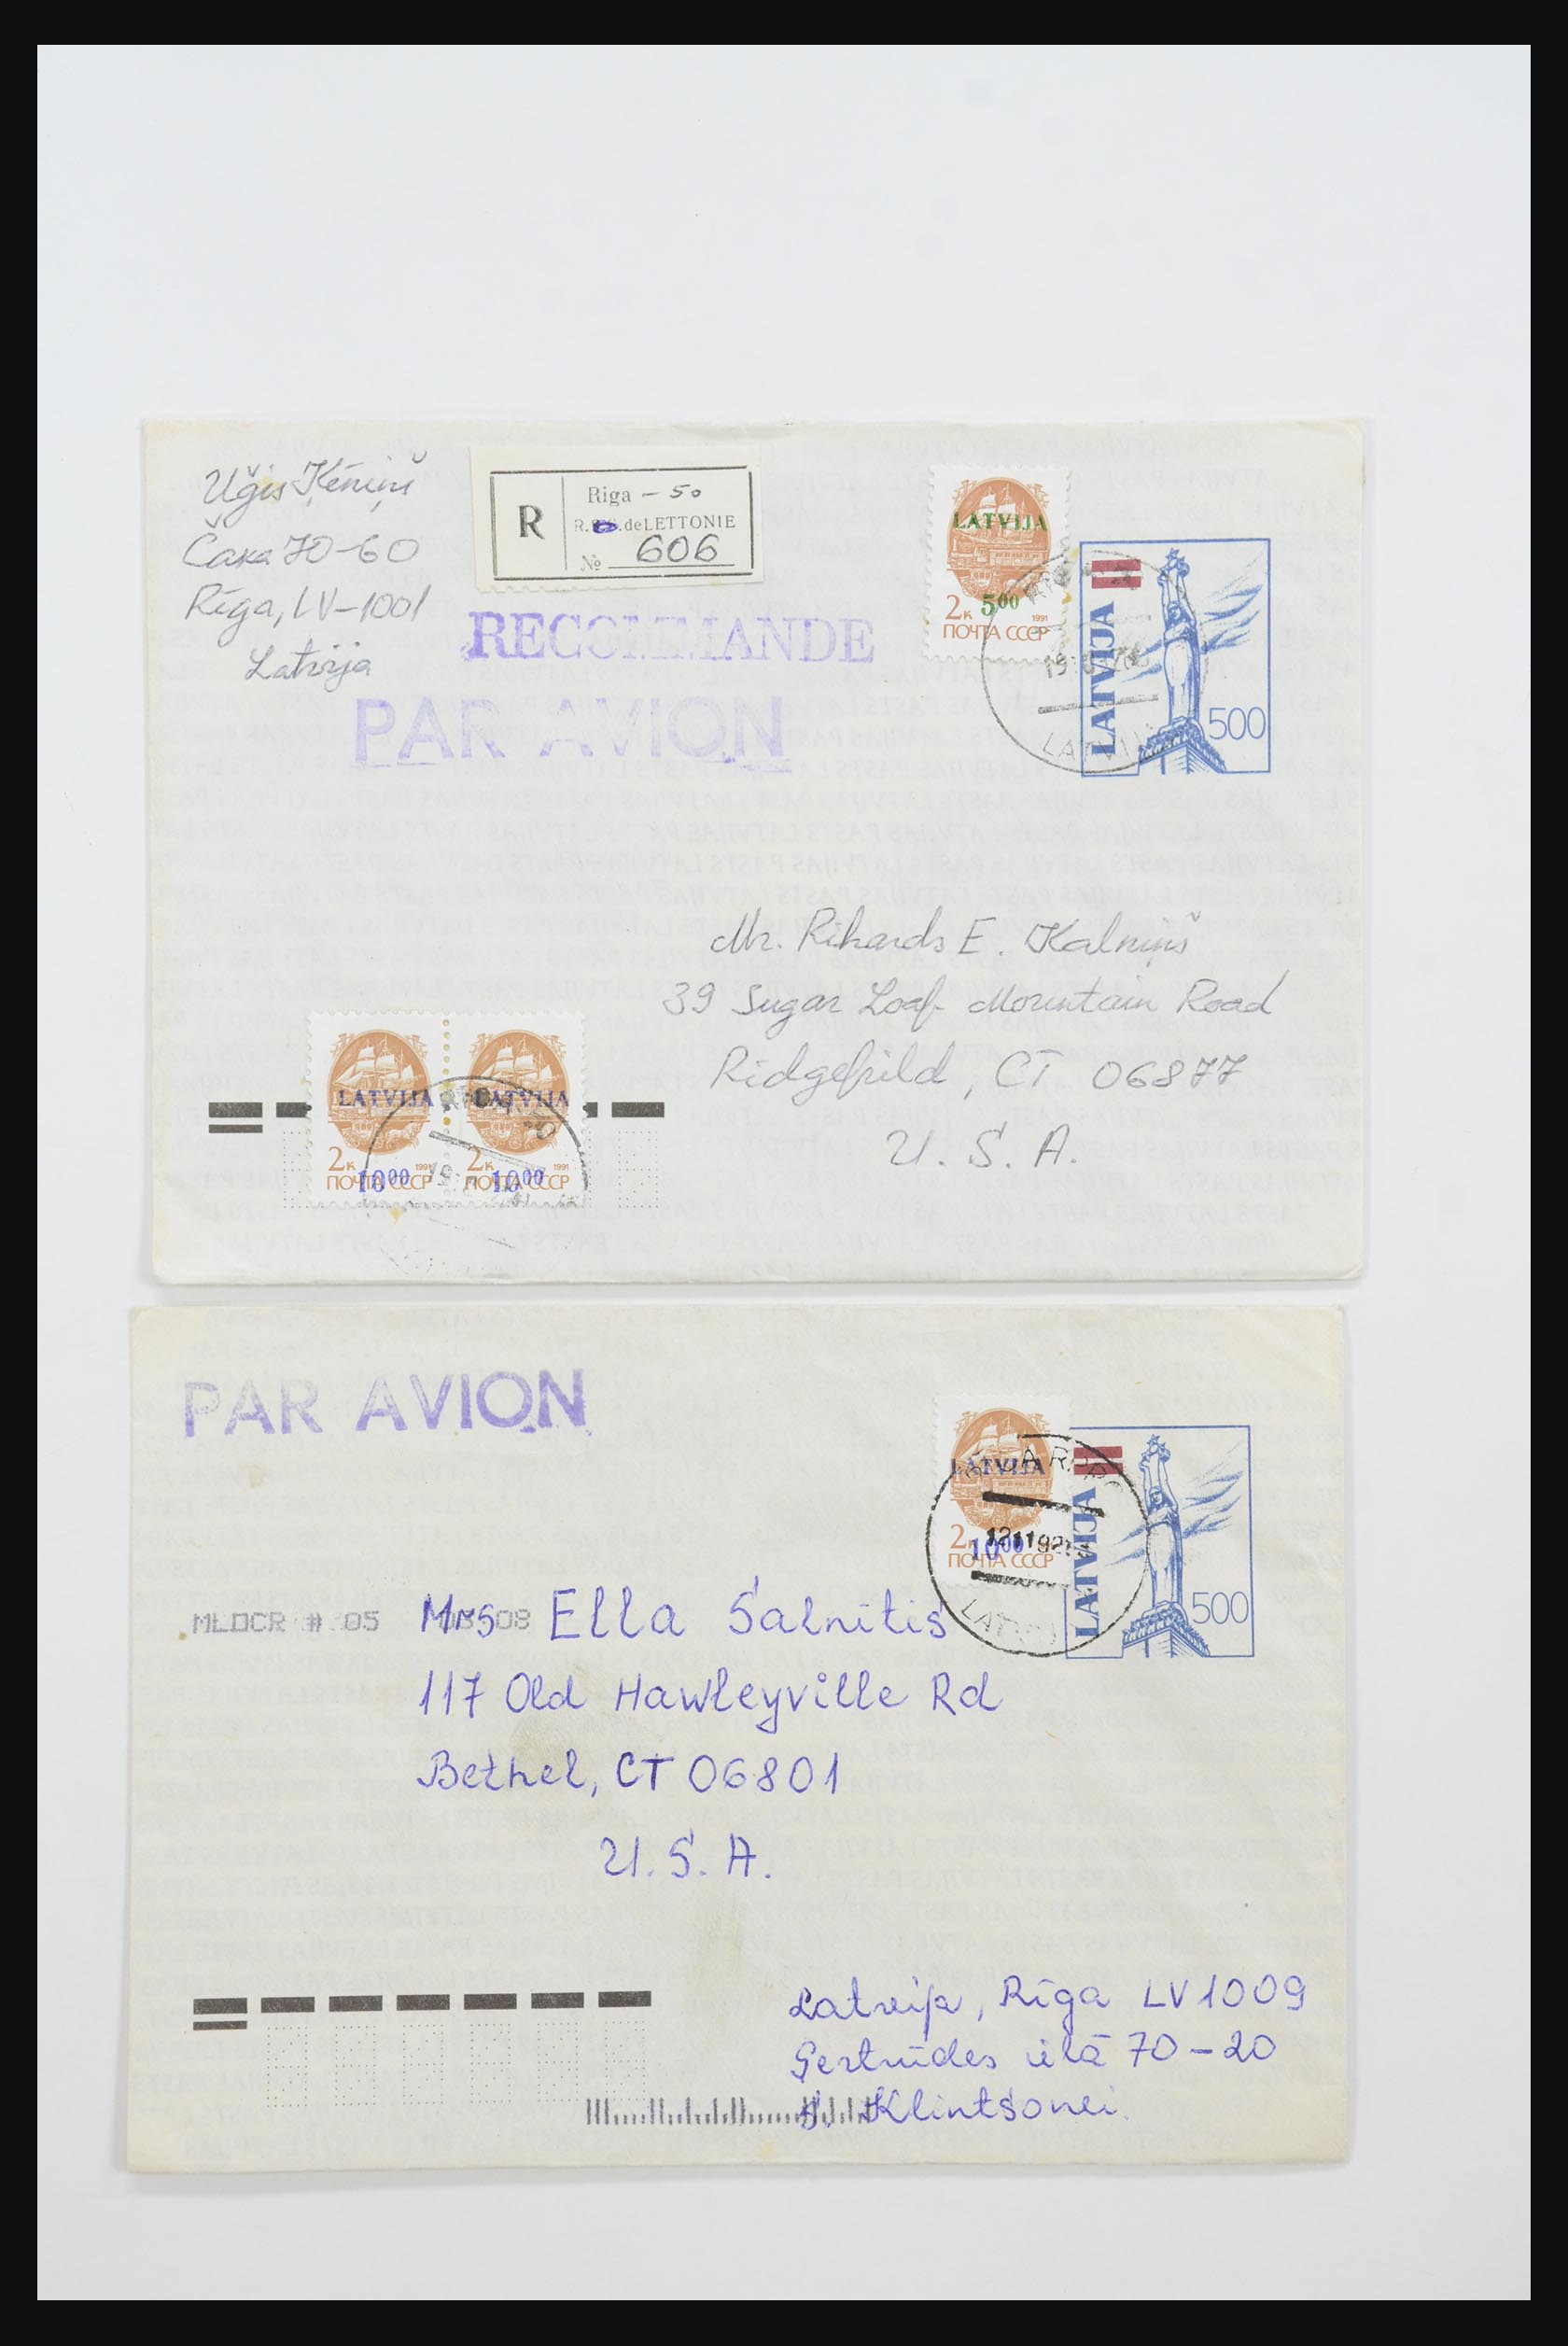 Uģis Ķēniņš
Čaka 70-60
Rīga, LV-1001
Latvija
R
Riga - 50
R. de LETTONIE
№ 606
RECOMMANDE
PAR AVION
LATVIJA
2к 5 00
1991
ПОЧТА СССР
LATVIJA
500
19
LATVIJA
Mr. Rihards E. Kalniņš
39 Sugar Loaf Mountain Road
Ridgefild, CT 06877
U. S. A.
LATVIJA LATVIJA
2к 1991 2к 1991
10 00 10 00
ПОЧТА СССР ПОЧТА СССР
PAR AVION
LATVIJA
2к 10 00
ПОЧТА СССР
12 11 92
LATVIJA
LATVIJA
500
MLOCR # 05
Mrs Ella Salnitis
117 Old Hawleyville Rd
Bethel, CT 06801
U. S. A.
Latvija, Rīga LV1009
Ģertrūdes ielā 70-20
Klintsonei